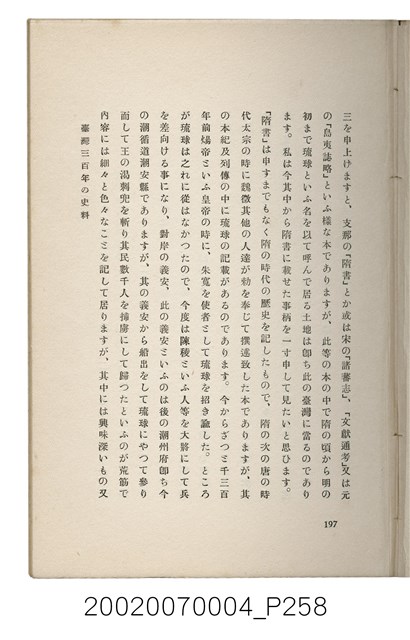 三を申上げますと、支那の『隋書』とか或は宋の『諸蕃志』、『文獻通考』又は元
の『島夷誌略』といふ樣な本でありますが、此等の本の中で隋の頃から明の
初まで琉球といふ名を以て呼んで居る土地は卽ち此の臺灣に當るのであり
ます。私は今其中から隋書に載せた事柄を一寸申して見たいと思ひます。
『隋書』は申すまでもなく隋の時代の歷史を記したもので、隋の次の唐の時
代太宗の時に魏徵其他の人達が勅を奉じて撰述致した本でありますが、其
の本紀及列傳の中に琉球の記載があるのであります。今からざつと千三百
年前煬帝といふ皇帝の時に、朱寬を使者として琉球を招き諭した。ところ
が琉球は之れに從はなかつたので、今度は陳稜といふ人等を大將にして兵
を差向ける事になり、對岸の義安、此の義安といふのは後の潮州府卽ち今
の潮循道潮安縣でありますが、其の義安から船出をして琉球にやつて參り
而して王の渴刺兜を斬り其民數千人を捕虜にして歸つたといふのが荒筋で
內容には細々と色々なことを記して居りますが、其中には興味深いもの又
臺灣三百年の史料
197
20020070004_P258